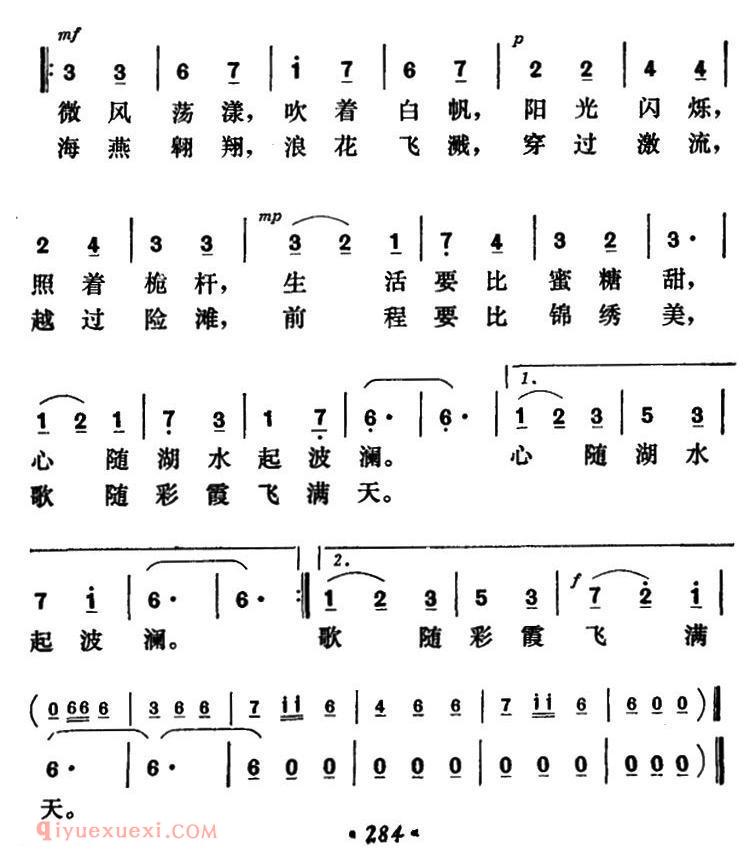 mf p
𝄆 3 3 | 6 7 | i 7 | 6 7 | 2 2 | 4 4 |
微风荡漾，吹着白帆，阳光闪烁，
海燕翱翔，浪花飞溅，穿过激流，
mp
2 4 | 3 3 | 3 2 1 | 7 4 | 3 2 | 3 · |
照着桅杆，生活要比蜜糖甜，
越过险滩，前程要比锦绣美，
1.
1 2 1 | 7 3 | 1 7 | 6 · | 6 · | 1 2 3 | 5 3 |
心随湖水起波澜。心随湖水
歌随彩霞飞满天。
2. f
7 i | 6 · | 6 · :‖ 1 2 3 | 5 3 | 7 2 i |
起波澜。歌随彩霞飞满
( 0 66 6 | 3 6 6 | 7 ii 6 | 4 6 6 | 7 ii 6 | 6 0 0 )
6 · | 6 · | 6 0 0 | 0 0 0 | 0 0 0 | 0 0 0 )
天。
qiyuexuexi.com
· 284 ·